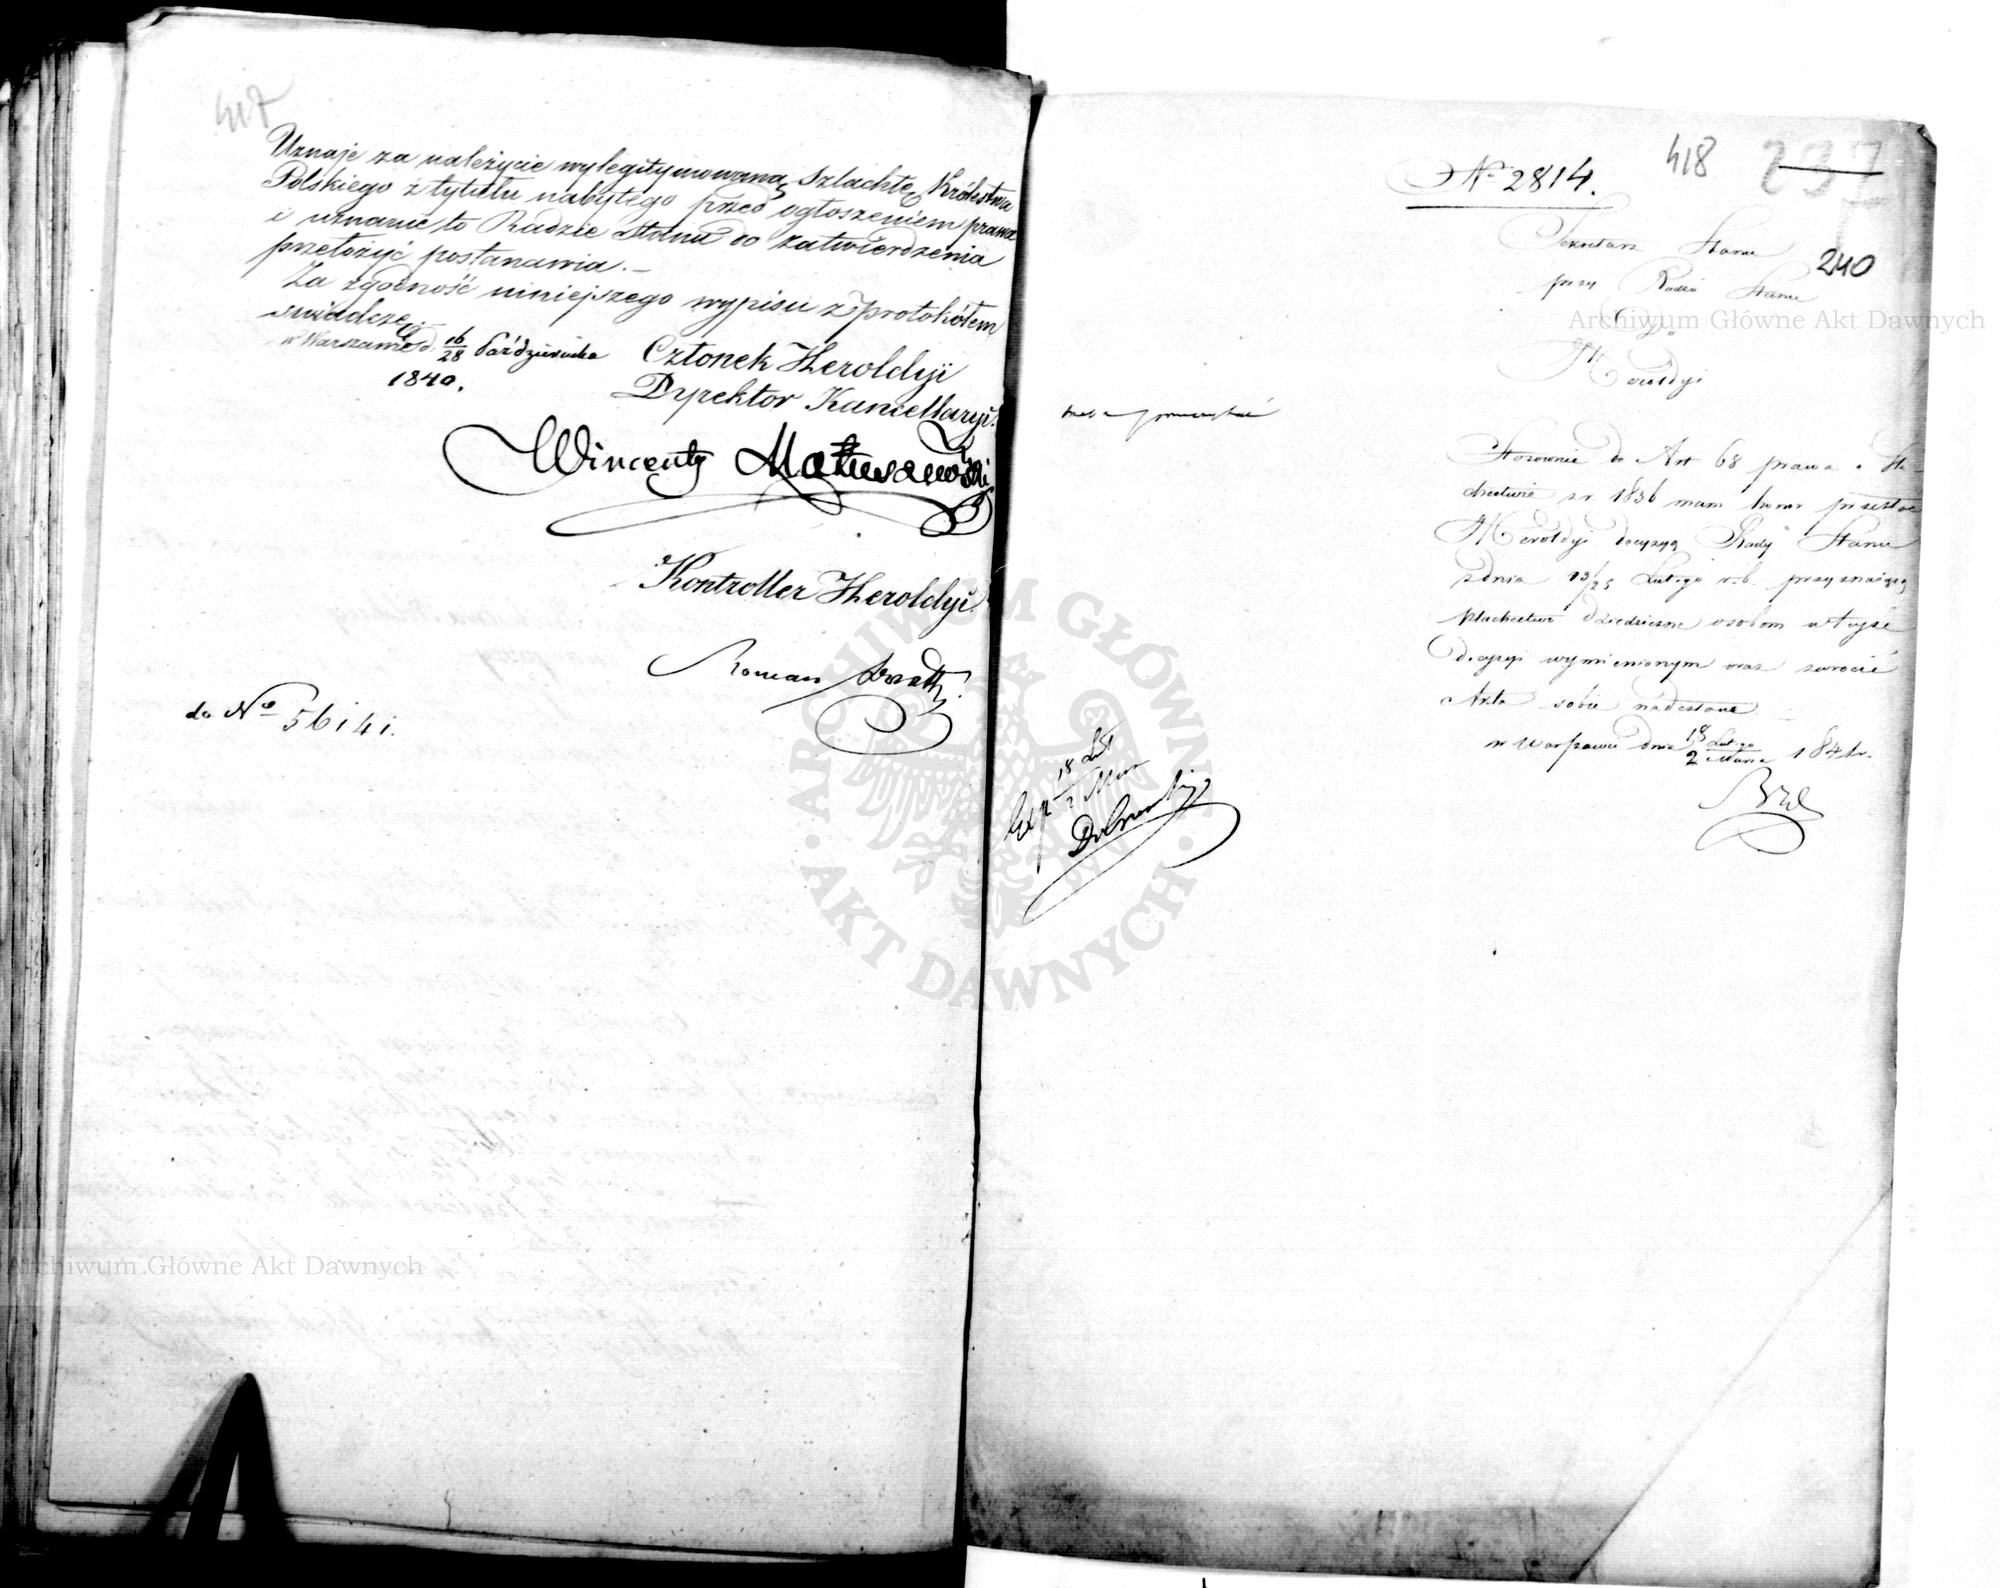 417
Uznaje za należycie wylegitymowaną Szlachtę Królestwa
Polskiego z tytułu nabytego przed ogłoszeniem prawa
i uznanie to Radzie Stanu do zatwierdzenia
przełożyć postanawia.
Za zgodność niniejszego wypisu z protokółem
świadczę.
w Warszawie d. 16/28 Października
1840.
Członek Heroldyi
Dyrektor Kancellaryi.
Wincenty Matuszewski
Kontroller Heroldyi.
Roman
do No 56141.
418 237
No 2814.
240
Sekretarz Stanu
przy Radzie Stanu
Do
Heroldyi
Stosownie do Art 68 prawa o Szla-
chectwie z r. 1836 mam honor przesłać
Heroldyi decyzyą Rady Stanu
z dnia 13/25 Lutego r. b. przyznaiącą
szlachectwo dziedziczne osobom w teyże
decyzyi wymienionym oraz zwrócić
Akta sobie nadesłane.
w Warszawie dnia 18 Lutego / 2 Marca 1841 r.
Exp 18 Lut / 2 Mar
Archiwum Główne Akt Dawnych
Archiwum Główne Akt Dawnych
ARCHIWUM GŁÓWNE AKT DAWNYCH